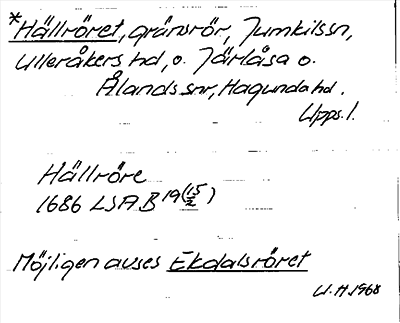 *Hällröret, gränsrör, Jumkils sn,
Ulleråkers hd, o. Järlåsa o.
Ålands snr, Hagunda hd.
Upps. l.
Hällröre
1686 LSA B 19 (15/2)
Möjligen avses Ekdalsröret
U.H. 1968